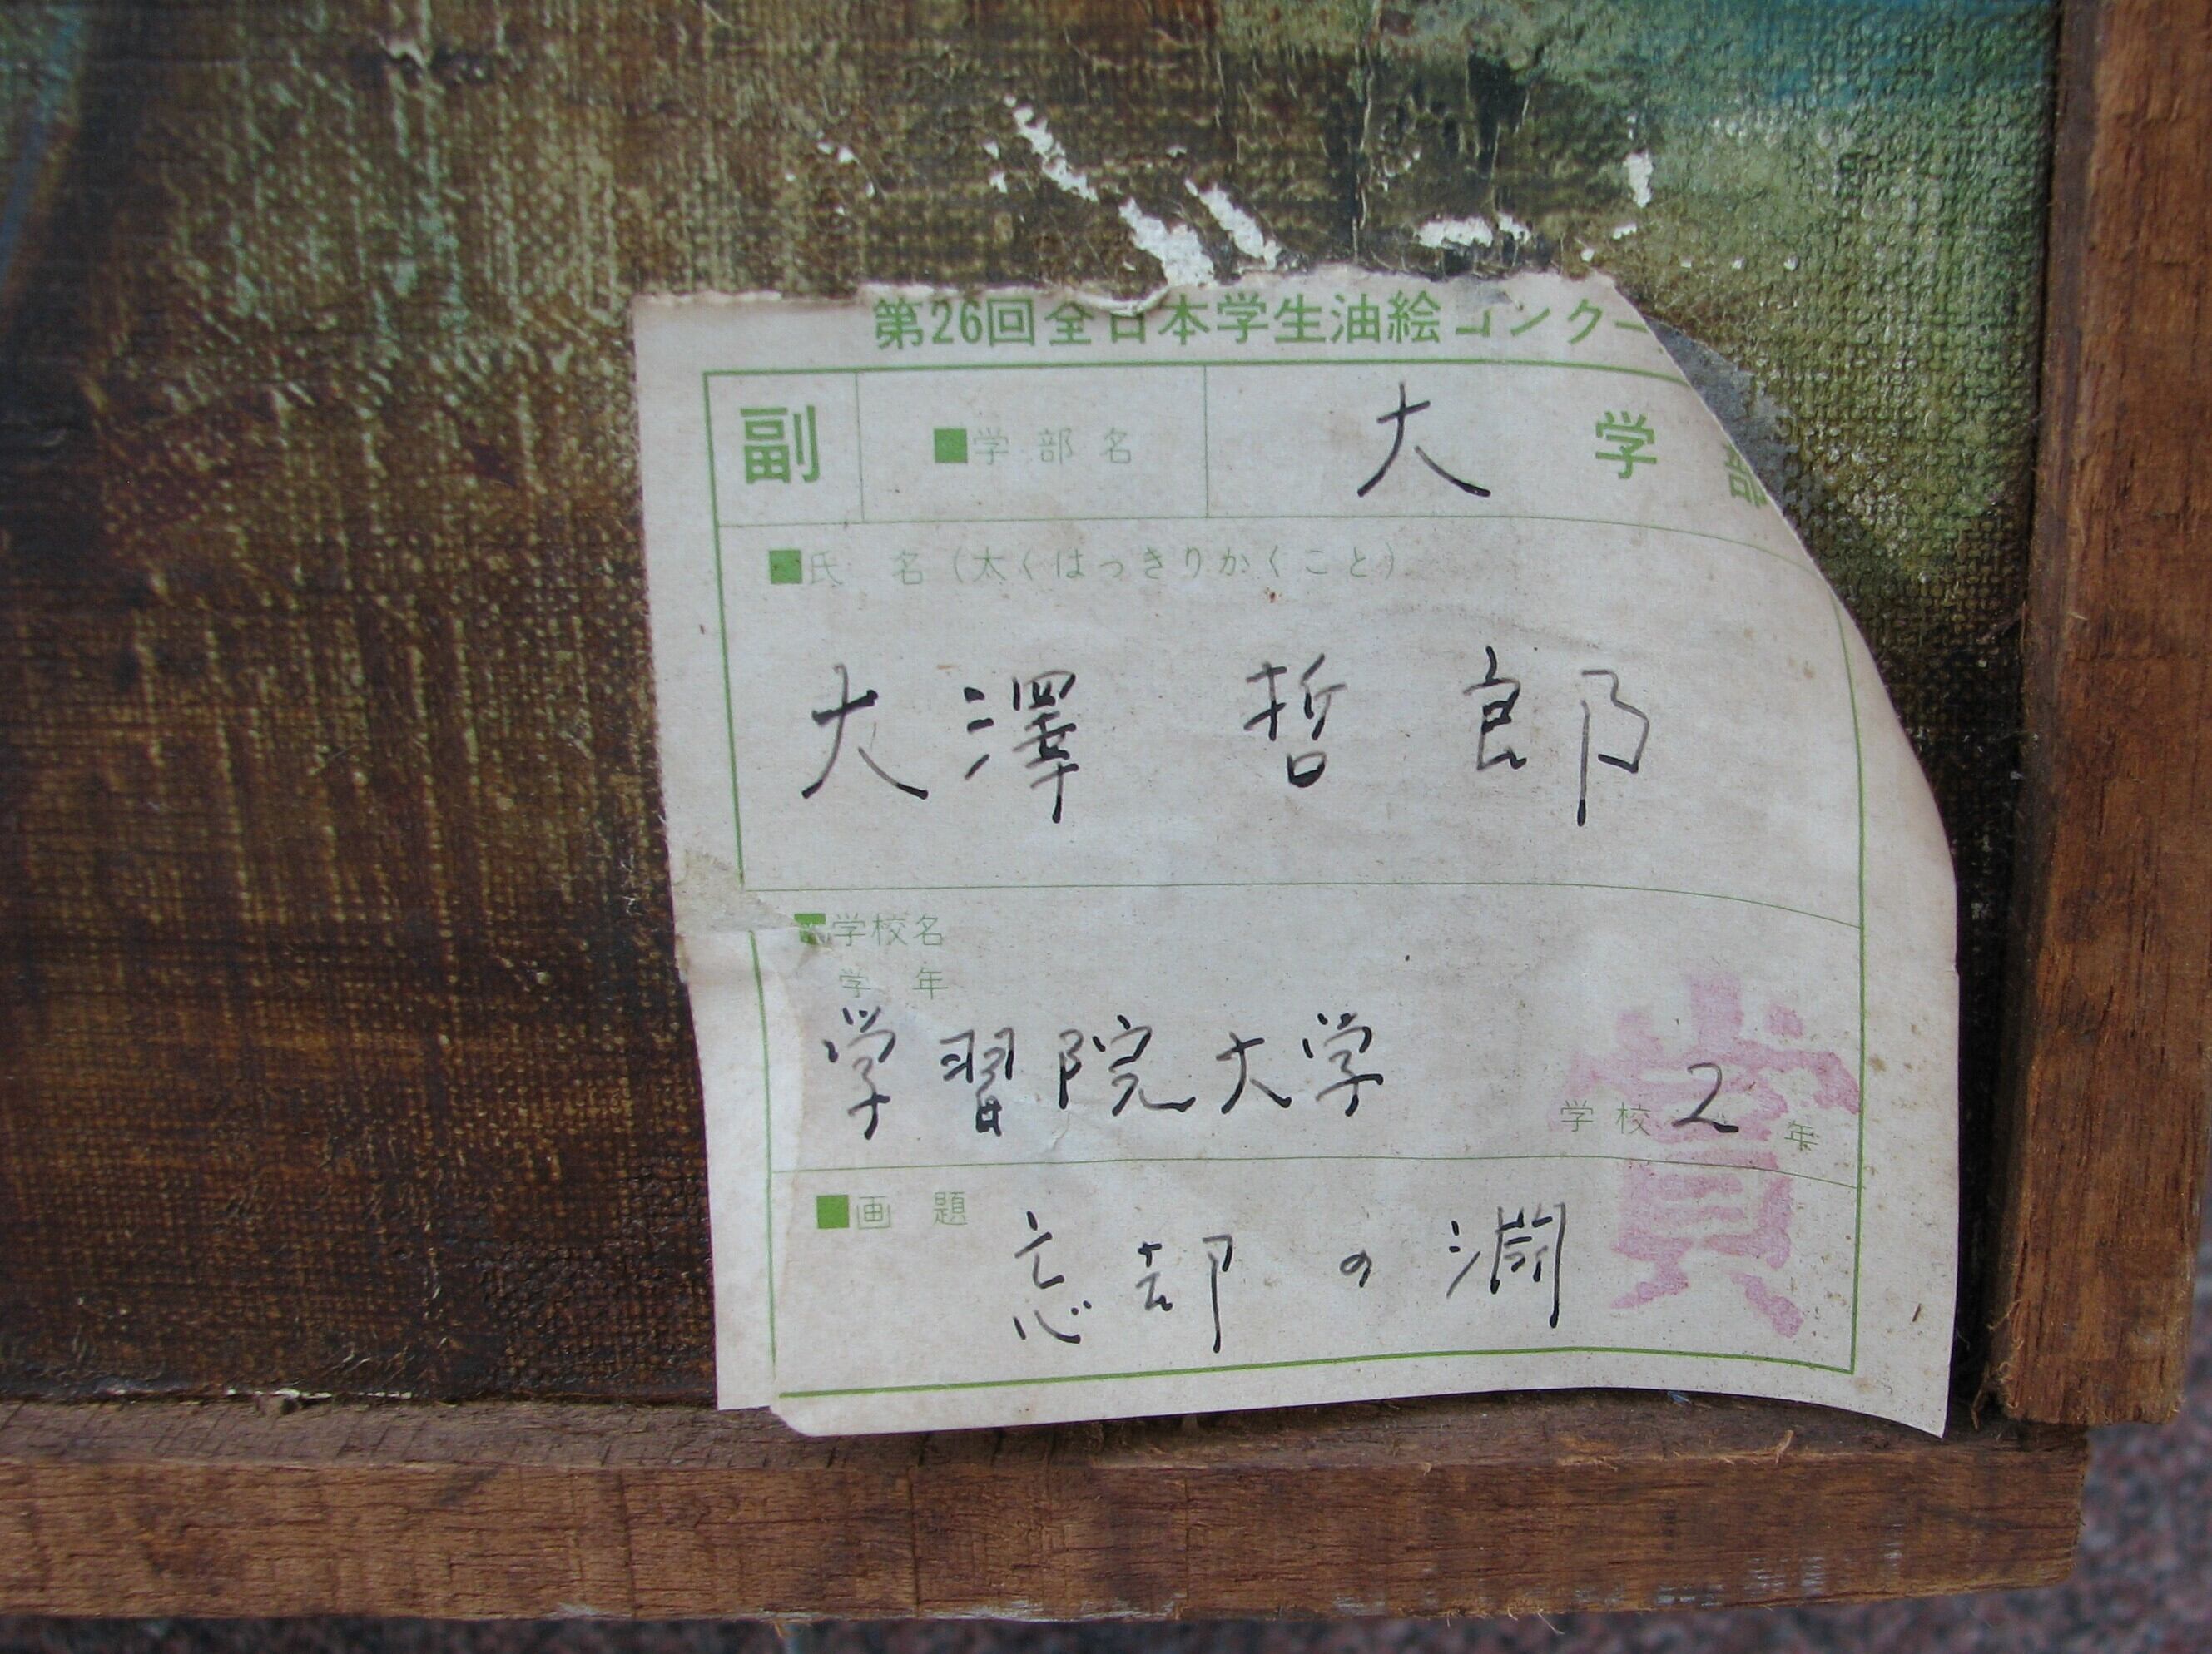 第26回全日本学生油絵コンクー
副 ■学部名 大学部
■氏 名(太くはっきりかくこと)
大澤 哲郎
■学校名
学 年
学習院大学 学校 2 年
賞
■画 題 忘却の淵